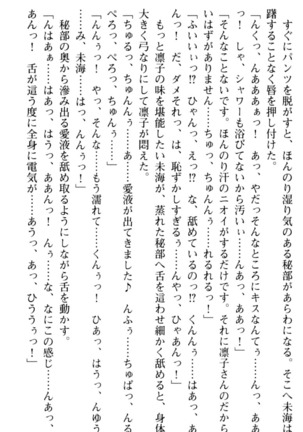 すぐにパンツを脱がすと、ほんのり湿り気のある秘部があらわになる。そこへ未海は
躇することなく唇を押し付けた。
「んくっ、んあああぁっ！　あっ、やだっそんなところにキスなんてぇっ……んっ、あ
っ！　しゃ、シャワーも浴びてないから汚いぃ……んふぁっ！」
「そんなことないです。ほんのり汗のニオイがするだけです。それに凛子さんのだから
いはずがありません……ちゅっ、ちゅんん……れるれるっ！」
「ふいいぃっ!?　ひゃんっ、えっ!?　な、舐めているのっ!?　くんんっ……はあっ、あ
んっ！　だ、ダメそれっ、は、恥ずかしすぎるぅ……んふぁっ、やっ、ひゃあんっ！」
もっと凛子の味を堪能したい未海が、蒸れた秘部へ舌を這わせ細かく舐めると、身体
大きく弓なりにして凛子が悶えた。
「ちゅるっ、ちゅんんっ……あ……愛液が出てきました♪　んふぅ……ちゅぱっ、んる
ぺろっ、ぺろっ、ちゅん……」
「んんぅっ！　やっ、そんな……もう濡れて……くんぅっ！　ひあっ、はうっ、んゆう
……み、未海……はっ、んんぅっ！」
秘部の奥から滲み出る愛液を舐め取るようにしながら舌を動かす。
「んはあぁ……はあっ、はうっ、ああんっ！　んぎ……な、なにこの感じ……んあっ、
あんっ！　舌が這う度に全身に電気が……あうっ、あっ、ひううぅっ！」